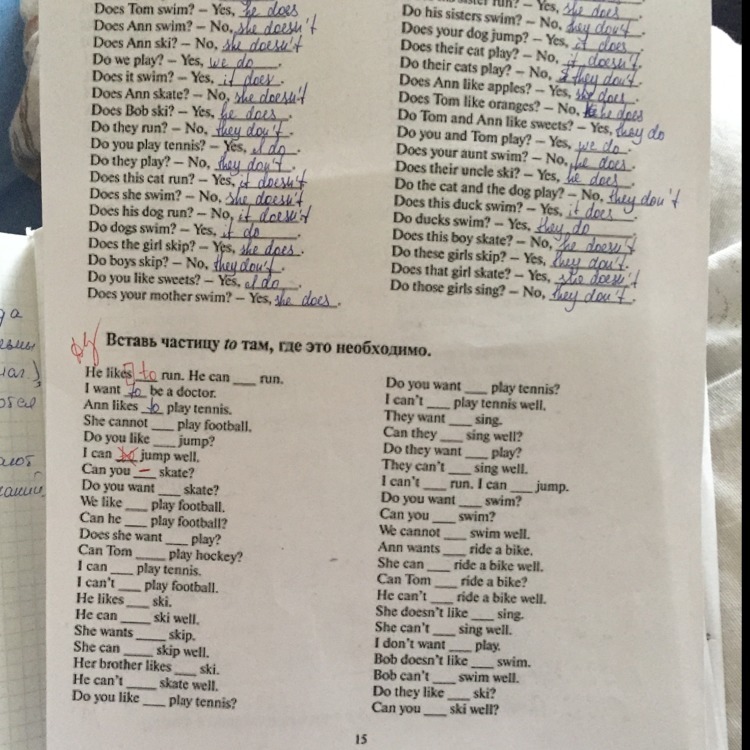 Does Tom swim? – Yes, he does
Does Ann swim? – No, she doesn't
Does Ann ski? – No, she doesn't
Do we play? – Yes, we do.
Does it swim? – Yes, it does.
Does Ann skate? – No, she doesn't
Does Bob ski? – Yes, he does.
Do they run? – No, they don't.
Do you play tennis? – Yes, I do.
Do they play? – No, they don't.
Does this cat run? – Yes, it doesn't
Does she swim? – No, she doesn't
Does his dog run? – No, it doesn't
Do dogs swim? – Yes, it do.
Does the girl skip? – Yes, she does.
Do boys skip? – No, they don't.
Do you like sweets? – Yes, I do.
Does your mother swim? – Yes, she does.
run? – Yes, she does.
Do his sisters swim? – No, they don't.
Does your dog jump? – Yes, it does.
Does their cat play? – No, it doesn't.
Do their cats play? – No, they don't.
Does Ann like apples? – Yes, she does.
Does Tom like oranges? – No, he does
Do Tom and Ann like sweets? – Yes, they do
Do you and Tom play? – Yes, we do.
Does your aunt swim? – No, he does.
Does their uncle ski? – Yes, he does.
Do the cat and the dog play? – No, they don't
Does this duck swim? – Yes, it does.
Do ducks swim? – Yes, they do.
Does this boy skate? – No, he doesn't.
Do these girls skip? – Yes, they don't.
Does that girl skate? – Yes, she doesn't
Do those girls sing? – No, they don't.
Вставь частицу to там, где это необходимо.
He likes to run. He can ___ run.
I want to be a doctor.
Ann likes to play tennis.
She cannot ___ play football.
Do you like ___ jump?
I can to jump well.
Can you – skate?
Do you want ___ skate?
We like ___ play football.
Can he ___ play football?
Does she want ___ play?
Can Tom ___ play hockey?
I can ___ play tennis.
I can't ___ play football.
He likes ___ ski.
He can ___ ski well.
She wants ___ skip.
She can ___ skip well.
Her brother likes ___ ski.
He can't ___ skate well.
Do you like ___ play tennis?
Do you want ___ play tennis?
I can't ___ play tennis well.
They want ___ sing.
Can they ___ sing well?
Do they want ___ play?
They can't ___ sing well.
I can't ___ run. I can ___ jump.
Do you want ___ swim?
Can you ___ swim?
We cannot ___ swim well.
Ann wants ___ ride a bike.
She can ___ ride a bike well.
Can Tom ___ ride a bike?
He can't ___ ride a bike well.
She doesn't like ___ sing.
She can't ___ sing well.
I don't want ___ play.
Bob doesn't like ___ swim.
Bob can't ___ swim well.
Do they like ___ ski?
Can you ___ ski well?
15